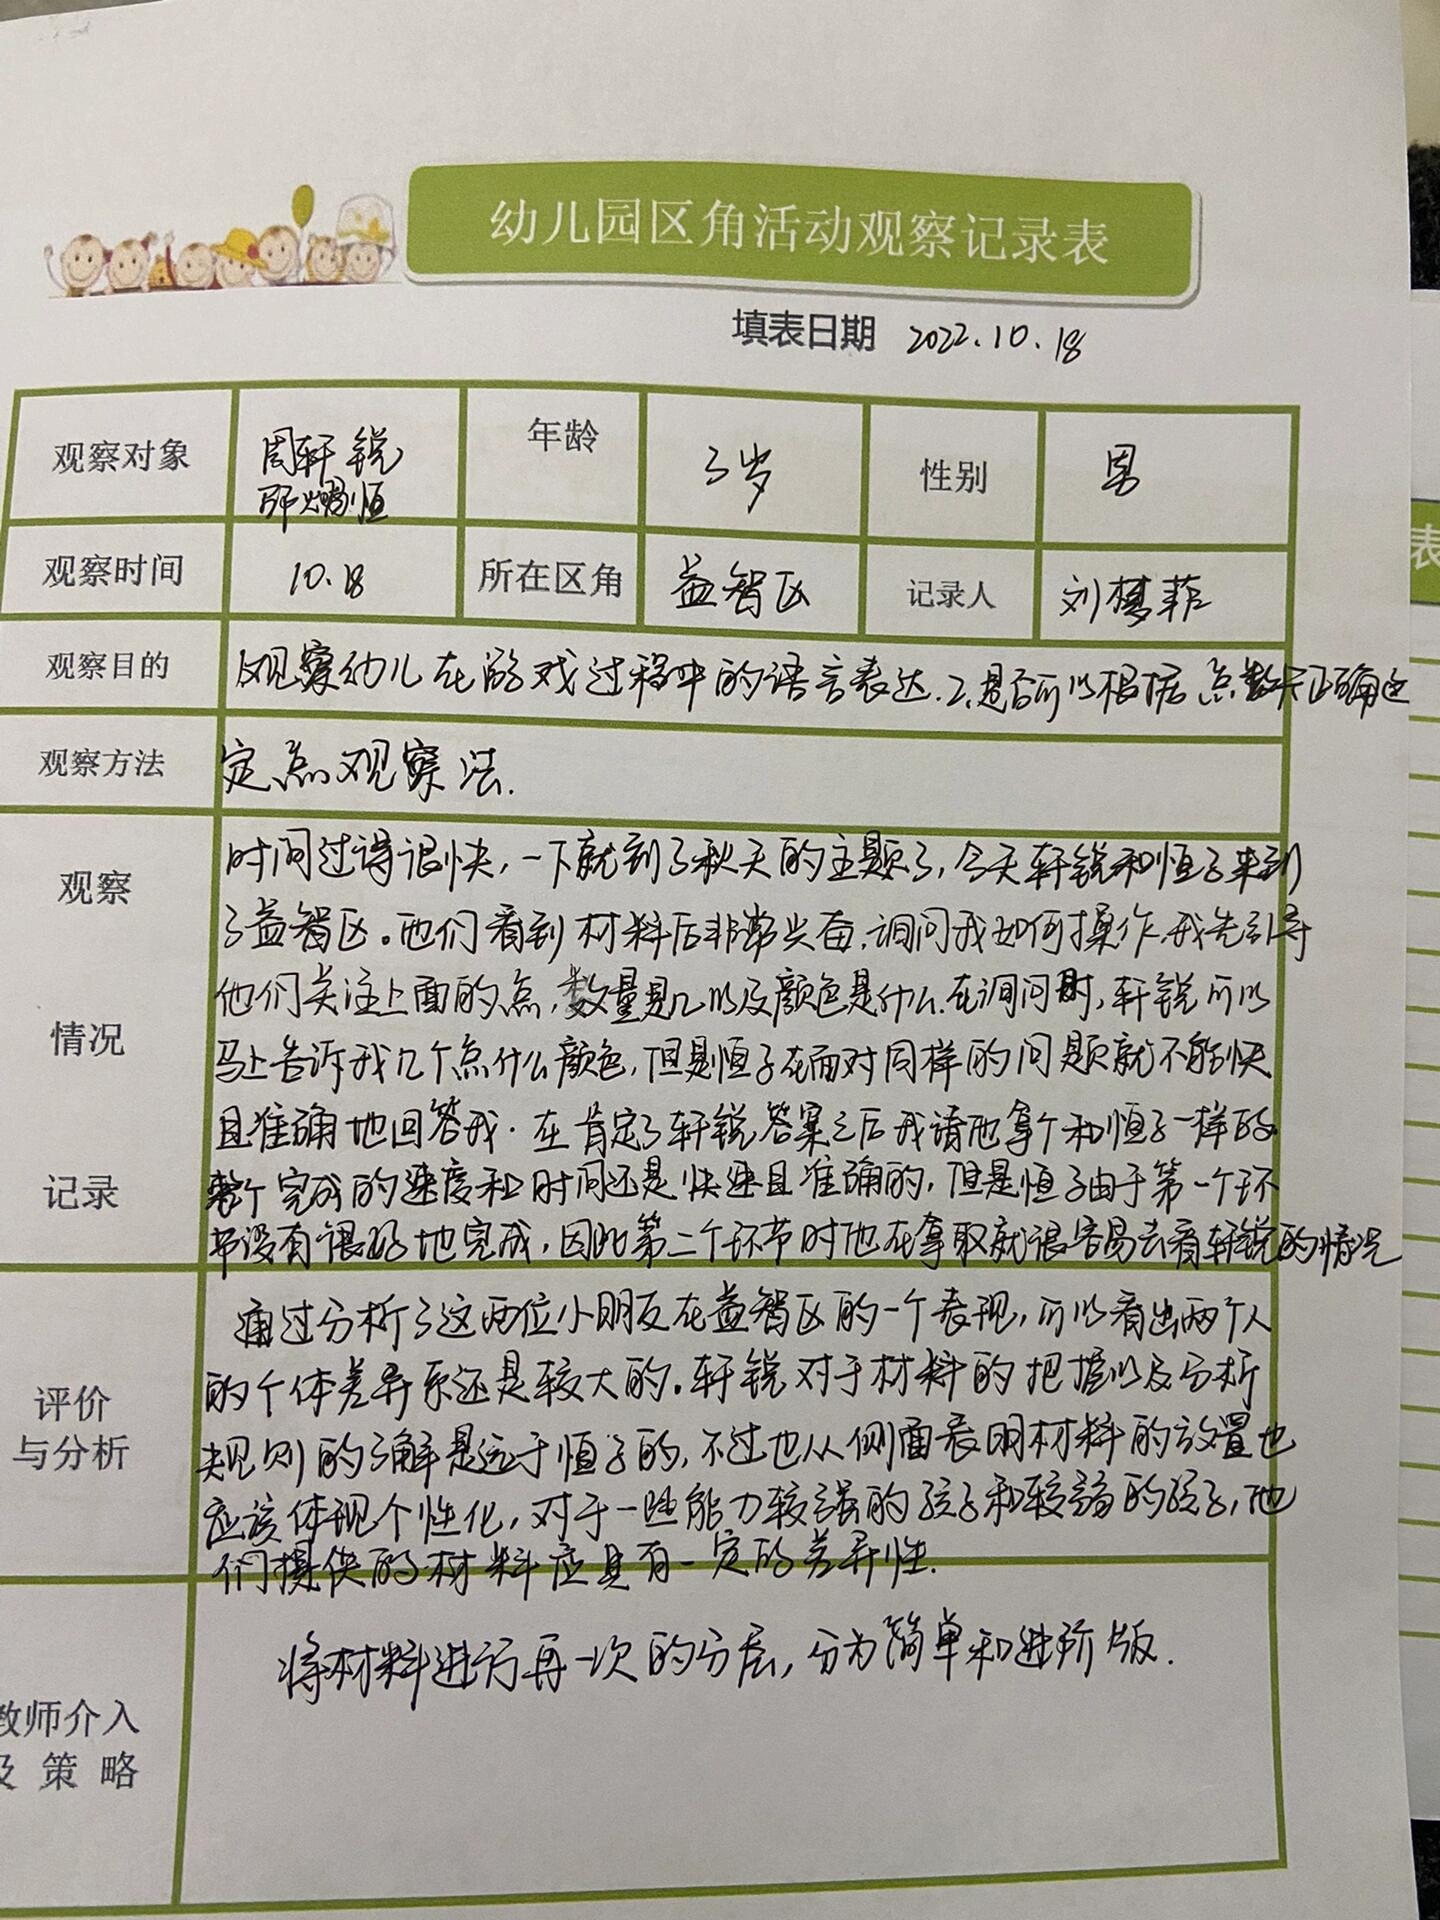 幼儿园区角活动观察记录表
填表日期 2022.10.18
观察对象 周轩锐 恒 年龄 3岁 性别 男
观察时间 10.18 所在区角 益智区 记录人 刘梦菲
观察目的 1.观察幼儿在游戏过程中的语言表达.2.是否可以根据点数正确
观察方法 定点观察法.
观察
情况
记录
时间过得很快,一下就到了秋天的主题了,今天轩锐和恒子来到
了益智区。他们看到材料后非常兴奋,询问我如何操作,我先引导
他们关注上面的点,数量是几以及颜色是什么.在询问时,轩锐可以
马上告诉我几个点什么颜色,但是恒子在面对同样的问题就不能快
且准确地回答我.在肯定了轩锐答案之后我请他拿个和恒子一样的
整个完成的速度和时间还是快速且准确的,但是恒子由于第一个环
节没有很好地完成,因此第二个环节时他在拿取就很容易去看轩锐的情况
评价
与分析
通过分析了这两位小朋友在益智区的一个表现,可以看出两个人
的个体差异系还是较大的.轩锐对于材料的把握以及分析
规则的了解是远于恒子的,不过也从侧面表明材料的放置也
应该体现个性化,对于一些能力较强的孩子和较弱的孩子,他
们提供的材料应具有一定的差异性.
教师介入
及策略
将材料进行再一次的分层,分为简单和进阶版.
表